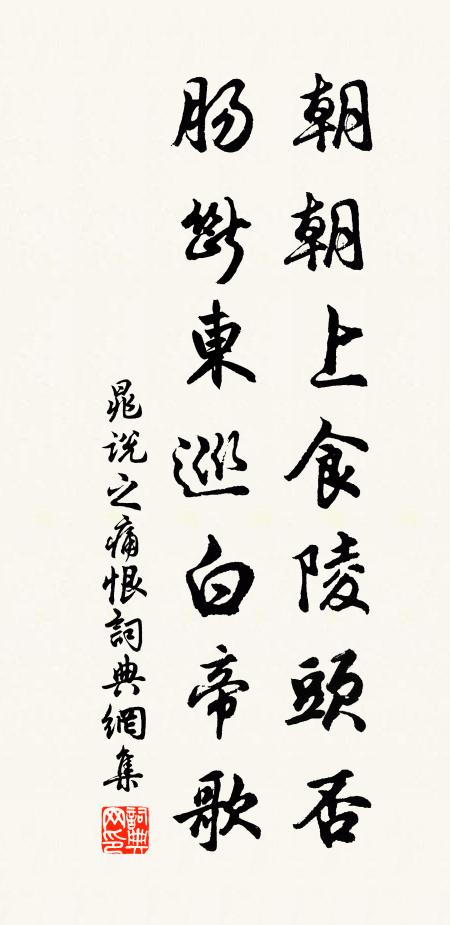 朝朝上食陵頭否
腸斷東巡白帝歌
晁说之痛恨詞典網集
詞典网印